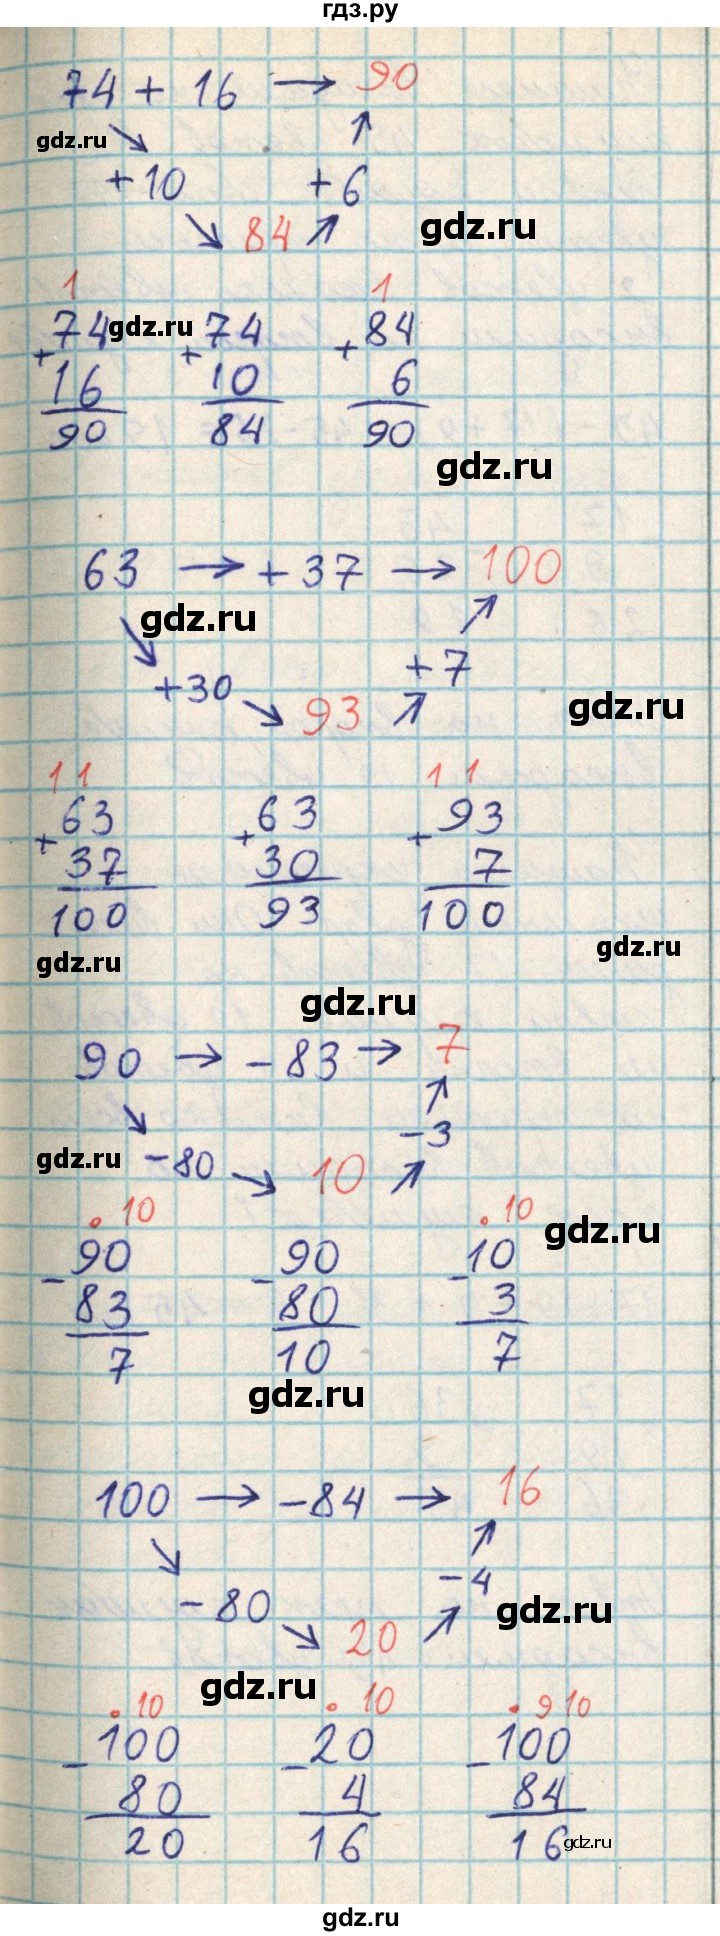 гдз.ру
74 + 16 → 90
gdz.ru
+10 +6
84
gdz.ru
1 1
74 74 84
gdz.ru
+ + +
16 10 6
90 84 90
gdz.ru
63 → +37 → 100
gdz.ru
+7
+30 93
gdz.ru
11 11
63 63 93
+ + +
37 30 7
100 93 100
gdz.ru
gdz.ru
gdz.ru
90 → -83 → 7
-3
gdz.ru
-80 10
. 10 . 10
gdz.ru
90 90 10
- - -
83 80 3
7 10 7
gdz.ru
100 → -84 → 16
-4
-80
gdz.ru
20
gdz.ru
. 10 . 10 . 9 10
100 20 100
- - -
80 4 84
20 16 16
gdz.ru
gdz.ru